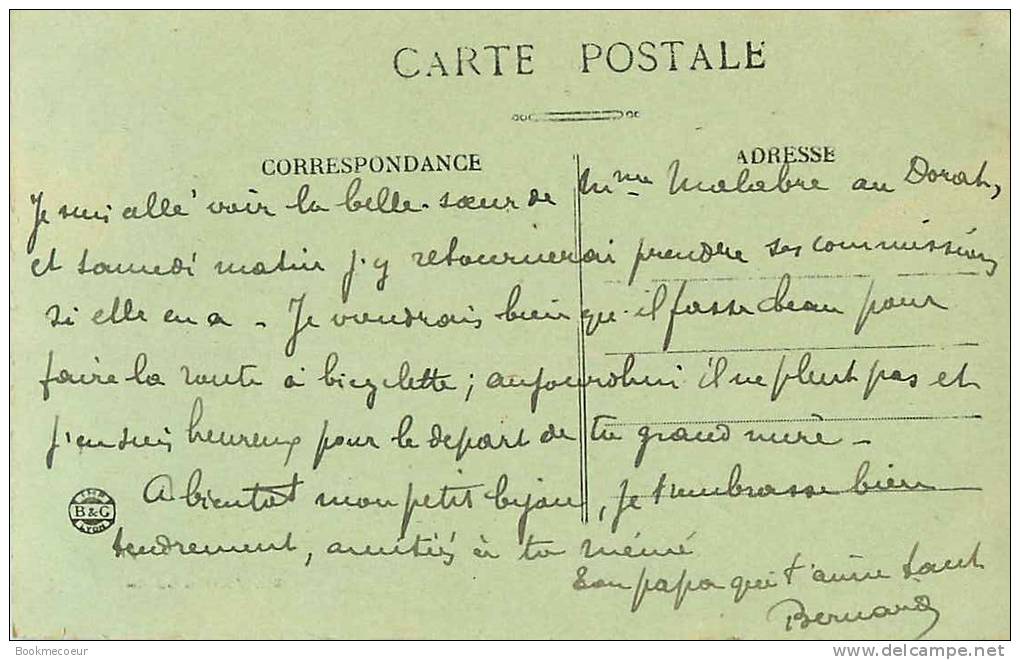 CARTE POSTALE
CORRESPONDANCE
ADRESSE
Je suis allé voir la belle-sœur de Mme Malabre au Dorat,
et samedi matin j'y retournerai prendre ses commissions
si elle en a - Je voudrais bien qu'il fasse beau pour
faire la route à bicyclette; aujourd'hui il ne pleut pas et
j'en suis heureux pour le départ de ta grand mère -
A bientôt mon petit bijou, je t'embrasse bien
tendrement, amitiés à ta mémé
Ton papa qui t'aime tant
Bernard
IMP
B & G
Lyon
Bookmecoeur
www.delcampe.net